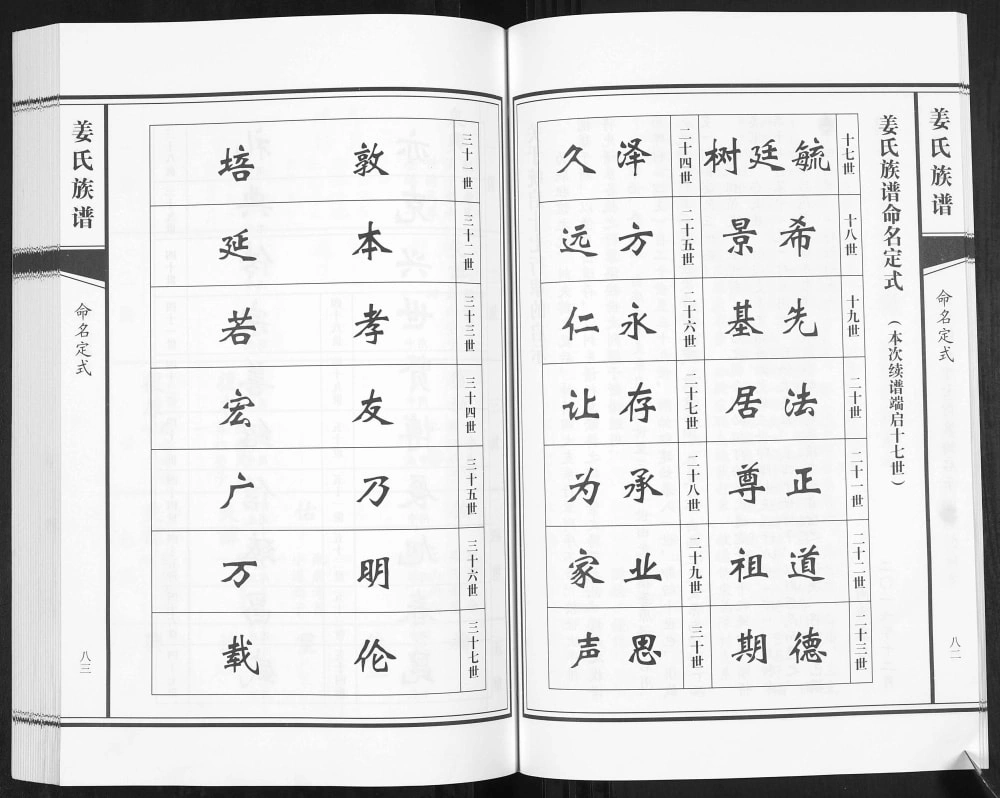 姜氏族谱
命名定式
八二
姜氏族谱命名定式(本次续谱端启十七世)
十七世 毓 廷 树
十八世 希 景
十九世 先 基
二十世 法 居
二十一世 正 尊
二十二世 道 祖
二十三世 德 期
二十四世 泽 久
二十五世 方 远
二十六世 永 仁
二十七世 存 让
二十八世 承 为
二十九世 业 家
三十世 思 声
三十一世 敦 培
三十二世 本 延
三十三世 孝 若
三十四世 友 宏
三十五世 乃 广
三十六世 明 万
三十七世 伦 载
姜氏族谱
命名定式
八三